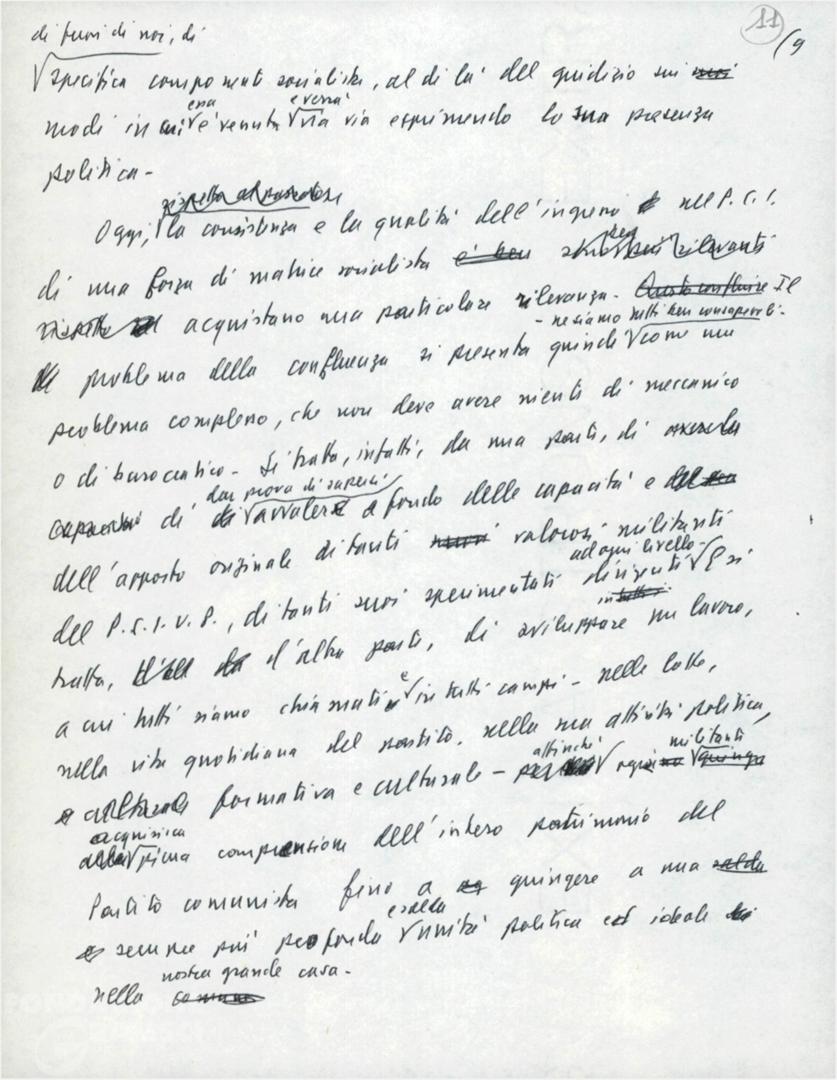 11
(9
di fuori di noi, di
specifica componente socialista, al di là del giudizio sui suoi
essa e verrà
modi in cui è venuta via via esprimendo la sua presenza
politica -
rispetto al passato
Oggi, la consistenza e la qualità dell'ingresso nel P.C.I.
di una forza di matrice socialista è ben rilevanti
rispetto acquistano una particolare rilevanza. Questa confluire Il
- ne siamo tutti ben consapevoli -
problema della confluenza si presenta quindi come un
problema complesso, che non deve avere niente di meccanico
o di burocratico - Si tratta, infatti, da una parte, di
dar prova di sapersi
di avvalere a fondo delle capacità e
dell'apporto originale di tanti nuovi valorosi militanti
ad ogni livello -
del P.S.I.U.P., di tanti suoi sperimentati dirigenti E si
in tutti
tratta, d'altra parte, di sviluppare un lavoro,
a cui tutti siamo chiamati e in tutti campi - nelle lotte,
nella vita quotidiana del partito, nella sua attività politica,
affinché militanti
culturale formativa e culturale - ogni giunga
acquisisca
piena comprensione dell'intero patrimonio del
Partito comunista fino a giungere a una salda
e salda
e sempre più profonda unità politica ed ideale
nostra grande casa -
nella comune